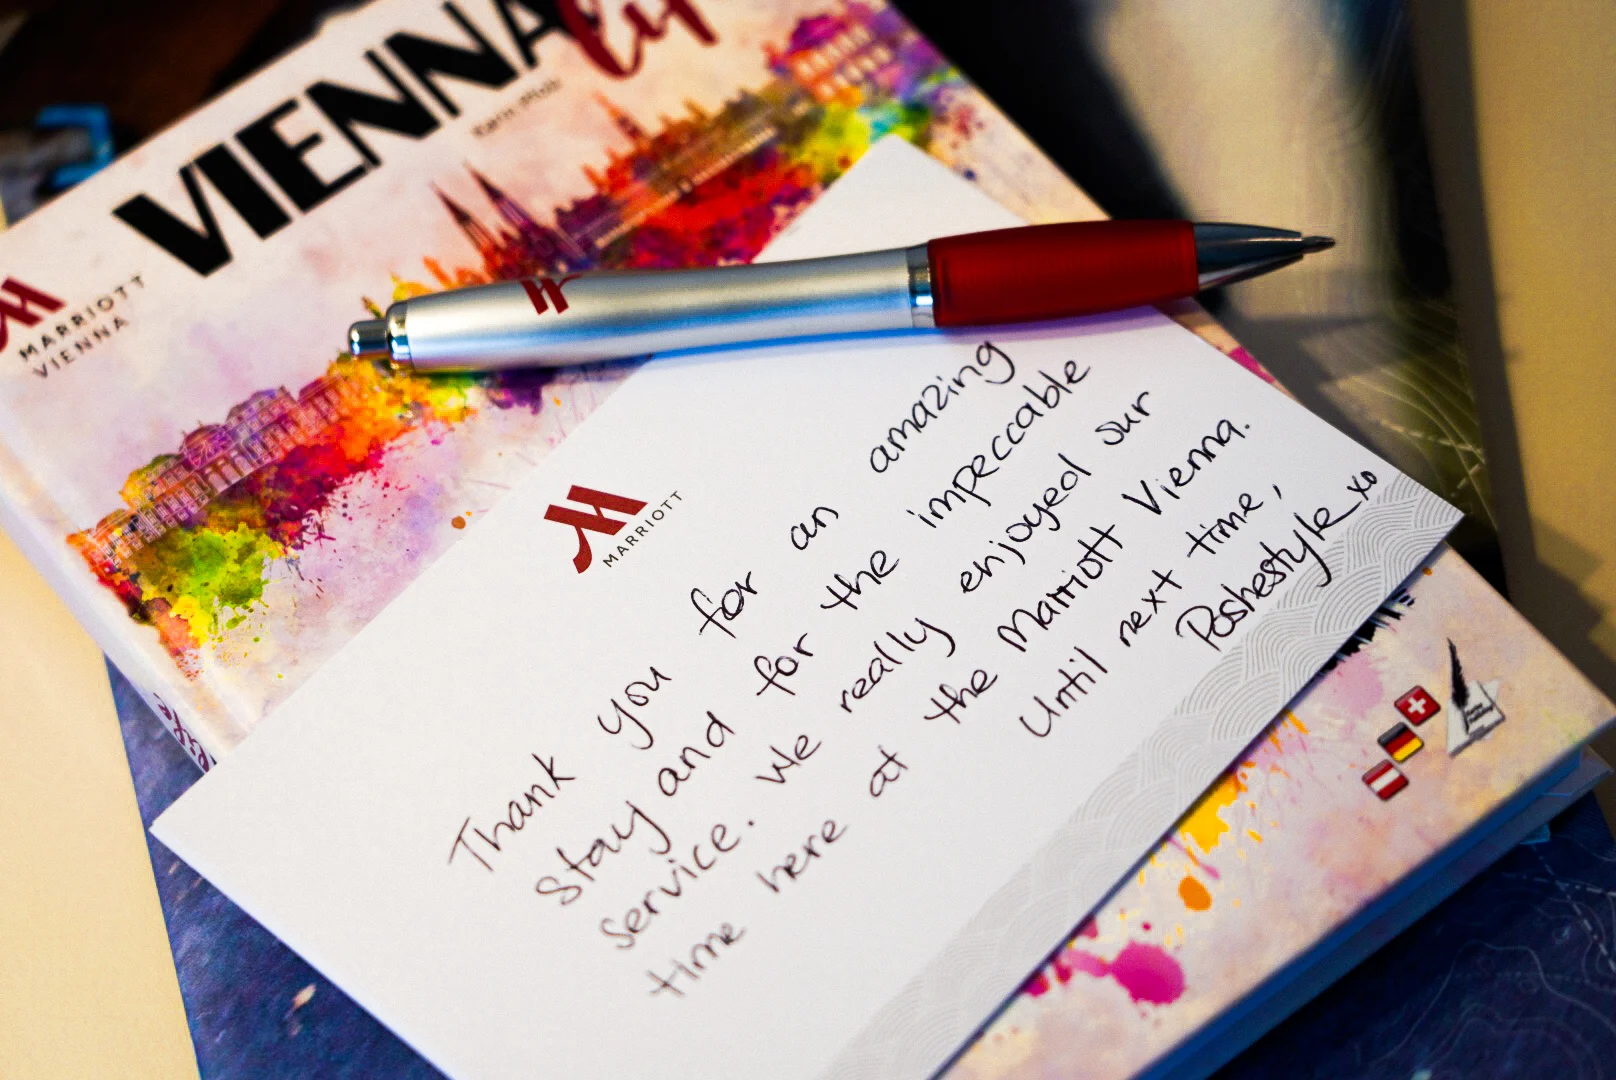 VIENNA
life
MARRIOTT
VIENNA
MARRIOTT
Thank you for an amazing
Stay and for the impeccable
service. We really enjoyed our
time here at the Marriott Vienna.
Until next time,
Poshestyle xo
life